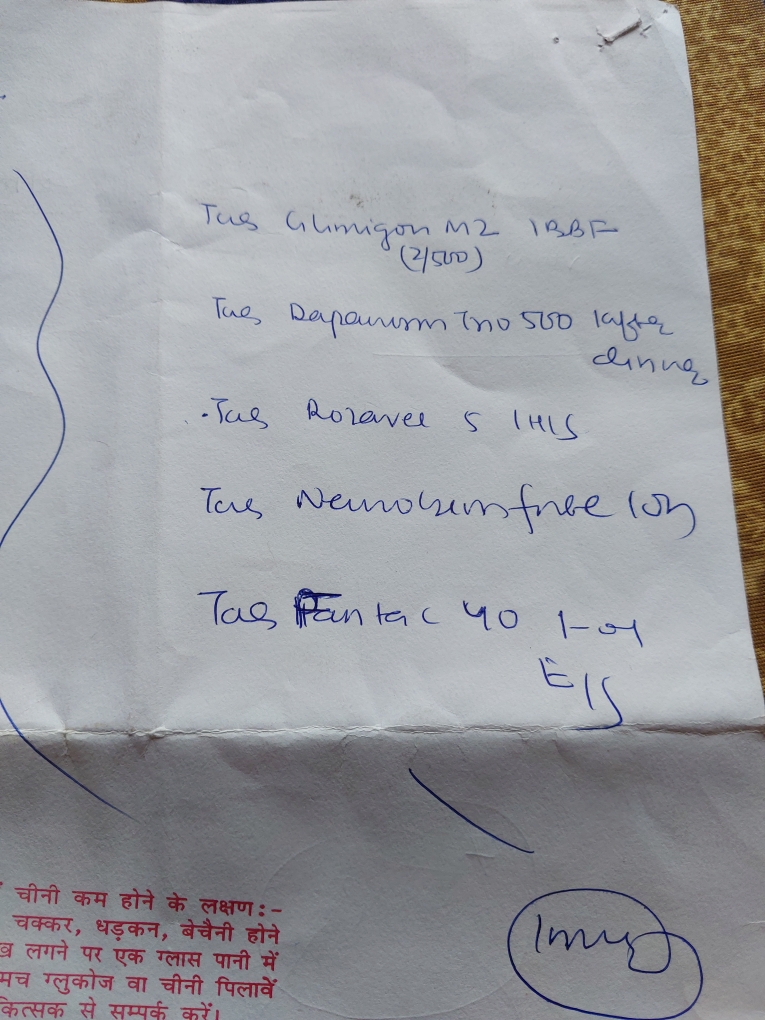 Tab Glimigon M2 1BBF
(2/500)
Tab Dapanorm Trio 500 1 after
dinner
Tab Rozavel 5 1HS
Tab Neurobion forte 1OD
Tab Pantac 40 1-OD
E/S
1m
चीनी कम होने के लक्षण:-
चक्कर, धड़कन, बेचैनी होने
लगने पर एक ग्लास पानी में
ग्लुकोज वा चीनी पिलावें
से सम्पर्क करें।